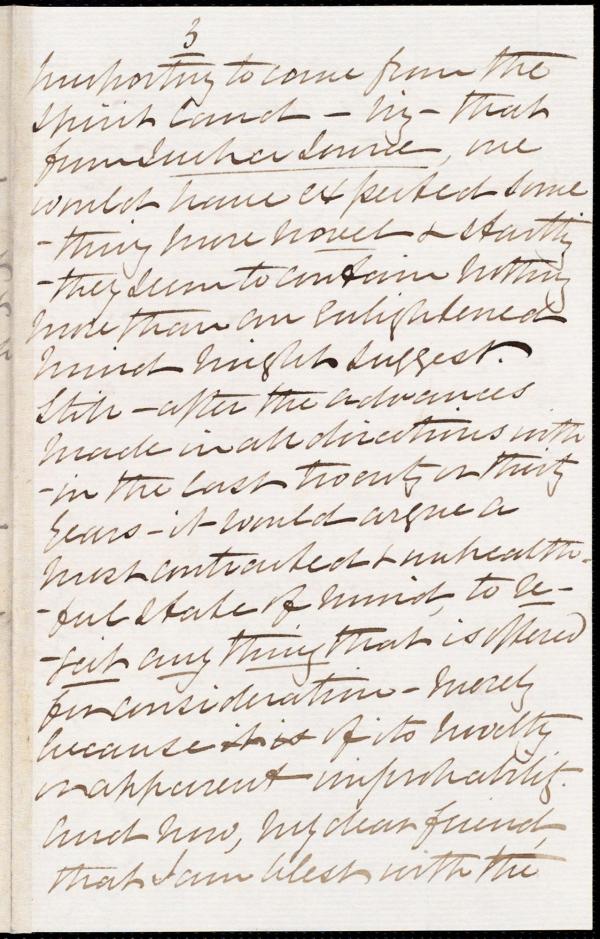 3
purporting to come from the
spirit land - viz - that
from such a source, one
would have expected some
-thing more novel & startling
-they seem to contain nothing
more than an enlightened
mind might suggest.
Still - after the advances
made in all directions with
-in the last twenty or thirty
years - it would argue a
most contracted & unhealth-
-ful state of mind, to re-
-ject any thing that is offered
for consideration - merely
because it is of its novelty
or apparent improbability.
And now, my dear friend,
that I am blest with the